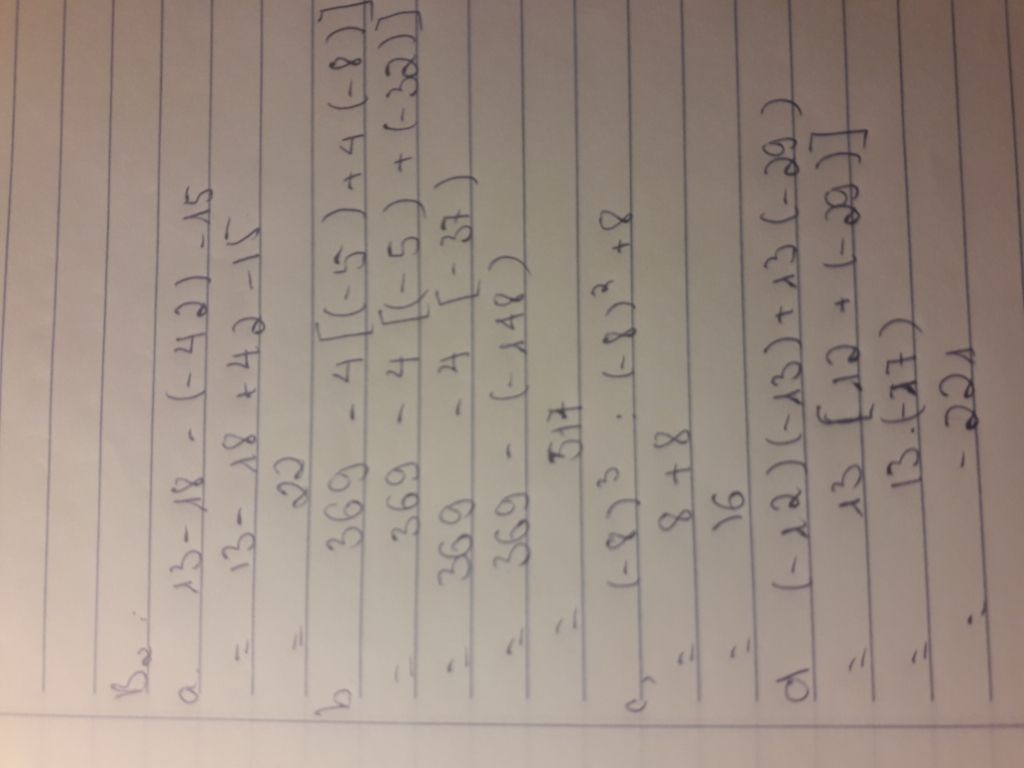 B2:
a 13 - 18 - (-42) - 15
= 13 - 18 + 42 - 15
= 22
b 369 - 4 [(-5) + 4 (-8)]
= 369 - 4 [(-5) + (-32)]
= 369 - 4 [-37)
= 369 - (-148)
= 517
c, (-8)³ : (-8)² + 8
= 8 + 8
= 16
d (-12)(-13) + 13 (-29)
= 13 [12 + (-29)]
= 13.(-17)
= -221